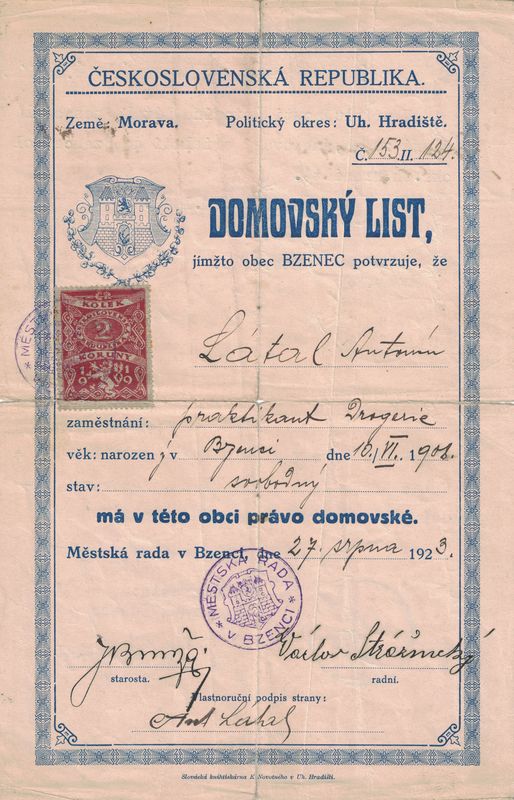 ČESKOSLOVENSKÁ REPUBLIKA.
Země: Morava. Politický okres: Uh. Hradiště.
Č. 153 II. 124.
DOMOVSKÝ LIST,
jímžto obec BZENEC potvrzuje, že
KOLEK
2
KORUNY
1919
Látal Antonín
zaměstnání: praktikant Drogerie
věk: narozený v Bzenci dne 10/VI. 1901.
stav: svobodný
má v této obci právo domovské.
Městská rada v Bzenci, dne 27. srpna 1923.
* MĚSTSKÁ RADA * V BZENCI
Václav
starosta. radní.
Vlastnoruční podpis strany:
Ant Látal
Slovácká knihtiskárna K. Novotného v Uh. Hradišti.